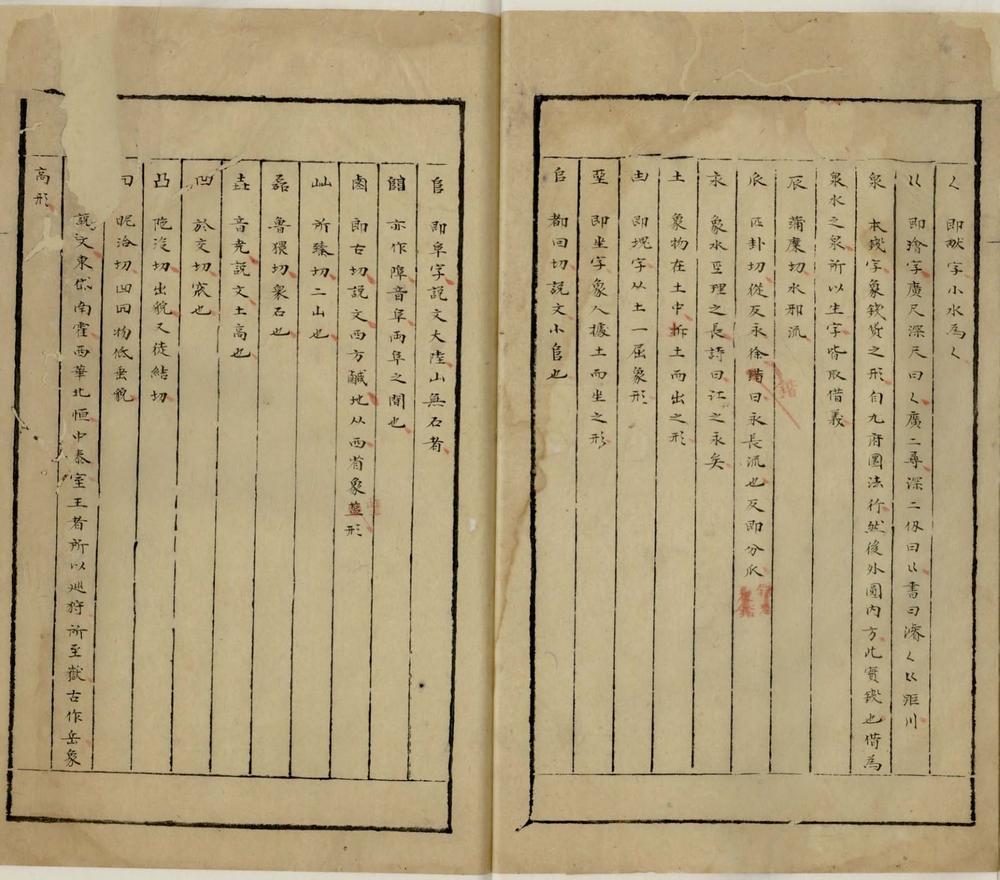 𡿨　即畎字小水為𡿨
巜　即澮字廣尺深尺曰𡿨廣二尋深二仭曰巜書曰濬𡿨巜距川
泉　本錢字象錢貨之形自九府圜法行然後外圜内方此實錢也借為
泉水之泉所以生字皆取借義
𠂢　蒲糜切水邪流
𠂢　匹卦切從反永徐鍇曰永長流也反即分𠂢
永　象水巠理之長詩曰江之永矣
土　象物在土中拆土而出之形
凷　即塊字从土一屈象形
坐　即坐字象人據土而坐之形
𠂤　都回切說文小𠂤也
𨸏　即阜字說文大陸山無石者
𨺅　亦作𨺅音阜兩阜之間也
鹵　即古切說文西方鹹地从西省象鹽形
屾　所臻切二山也
磊　魯猥切衆石也
垚　音尭說文土高也
凹　於交切窊也
凸　陁没切出貌又徒結切
昵洽切凹囘物低垂貌
說文東岱南霍西華北恒中泰室王者所以廵狩所至嶽古作岳象
高形